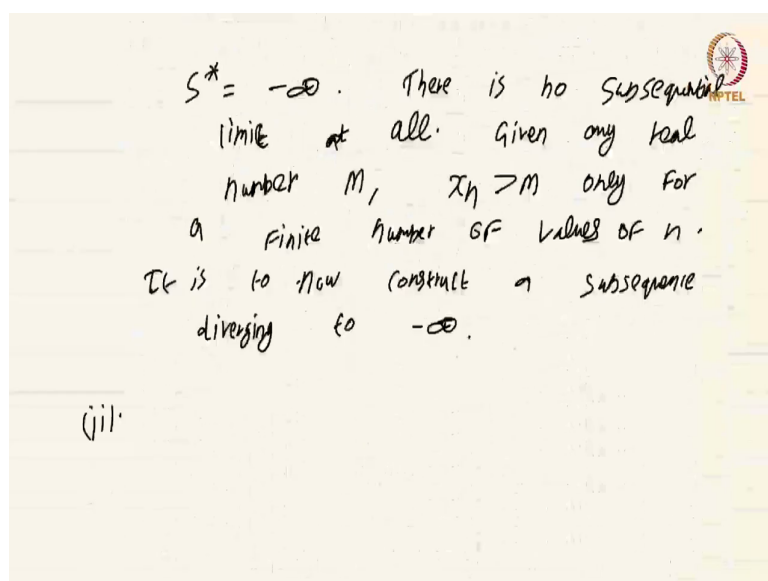 S* = -∞. There is no Subsequential
limit at all. Given any real
number M, xₙ > M only for
a finite number of values of n.
It is to now construct a subsequence
diverging to -∞.
(ii).
NPTEL